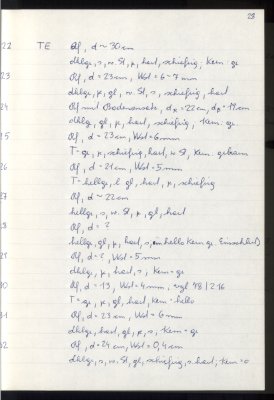 28
22 TE Rf, d ~ 30 cm
dklgr, s, w. St, k, hart, schiefrig, Kern: gr
23 Rf, d = 23 cm, Wst = 6-7 mm
dklgr, k, gl, w. St, s, schiefrig, hart
24 Rf mit Bodenansatz, dR = 22 cm, dB = 19 cm
dklg, gl, k, hart, schiefrig, Kern: gr.
25 Rf, d = 23 cm, Wst = 6 mm
T = gr, k, schiefrig, hart, w. St, Kern:
26 Rf, d = 21 cm, Wst = 5 mm
T = hellgr, gl, hart, k, schiefrig
27 Rf, d ~ 22 cm
hellgr, s, w. St, k, gl, hart
Rf, d = ?
hellgr, gl, k, hart, s,
Rf, d = ?, Wst = 5 mm
dklg, k, hart, s, Kern = gr
Rf, d = 19, Wst = 4 mm, vgl 98/216
T = gr, k, gl, hart, Kern = hell
Rf, d = 23 cm, Wst = 6 mm
dklgr, hart, gl, k, s, Kern = gr
Rf, d = 24 cm, Wst = 0,4 cm
dklgr, s, w. St, gl, schiefrig, s. hart, Kern =